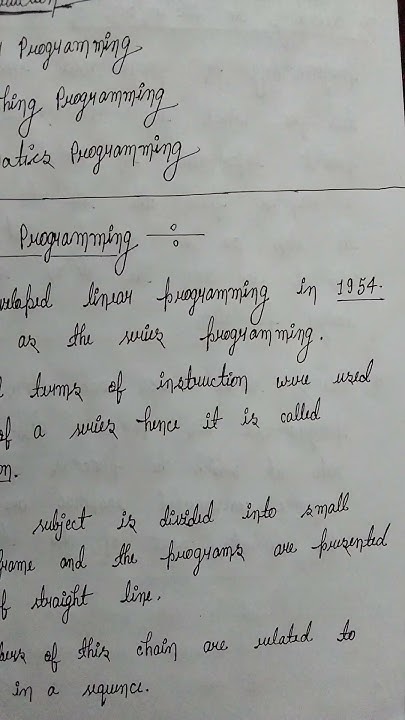 Programming
Programming
Programming
Programming ÷
linear programming in 1954.
as the series programming.
terms of instruction were used
of a series hence it is called
subject is divided into small
frame and the programs are presented
of straight line.
of this chain are related to
in a sequence.